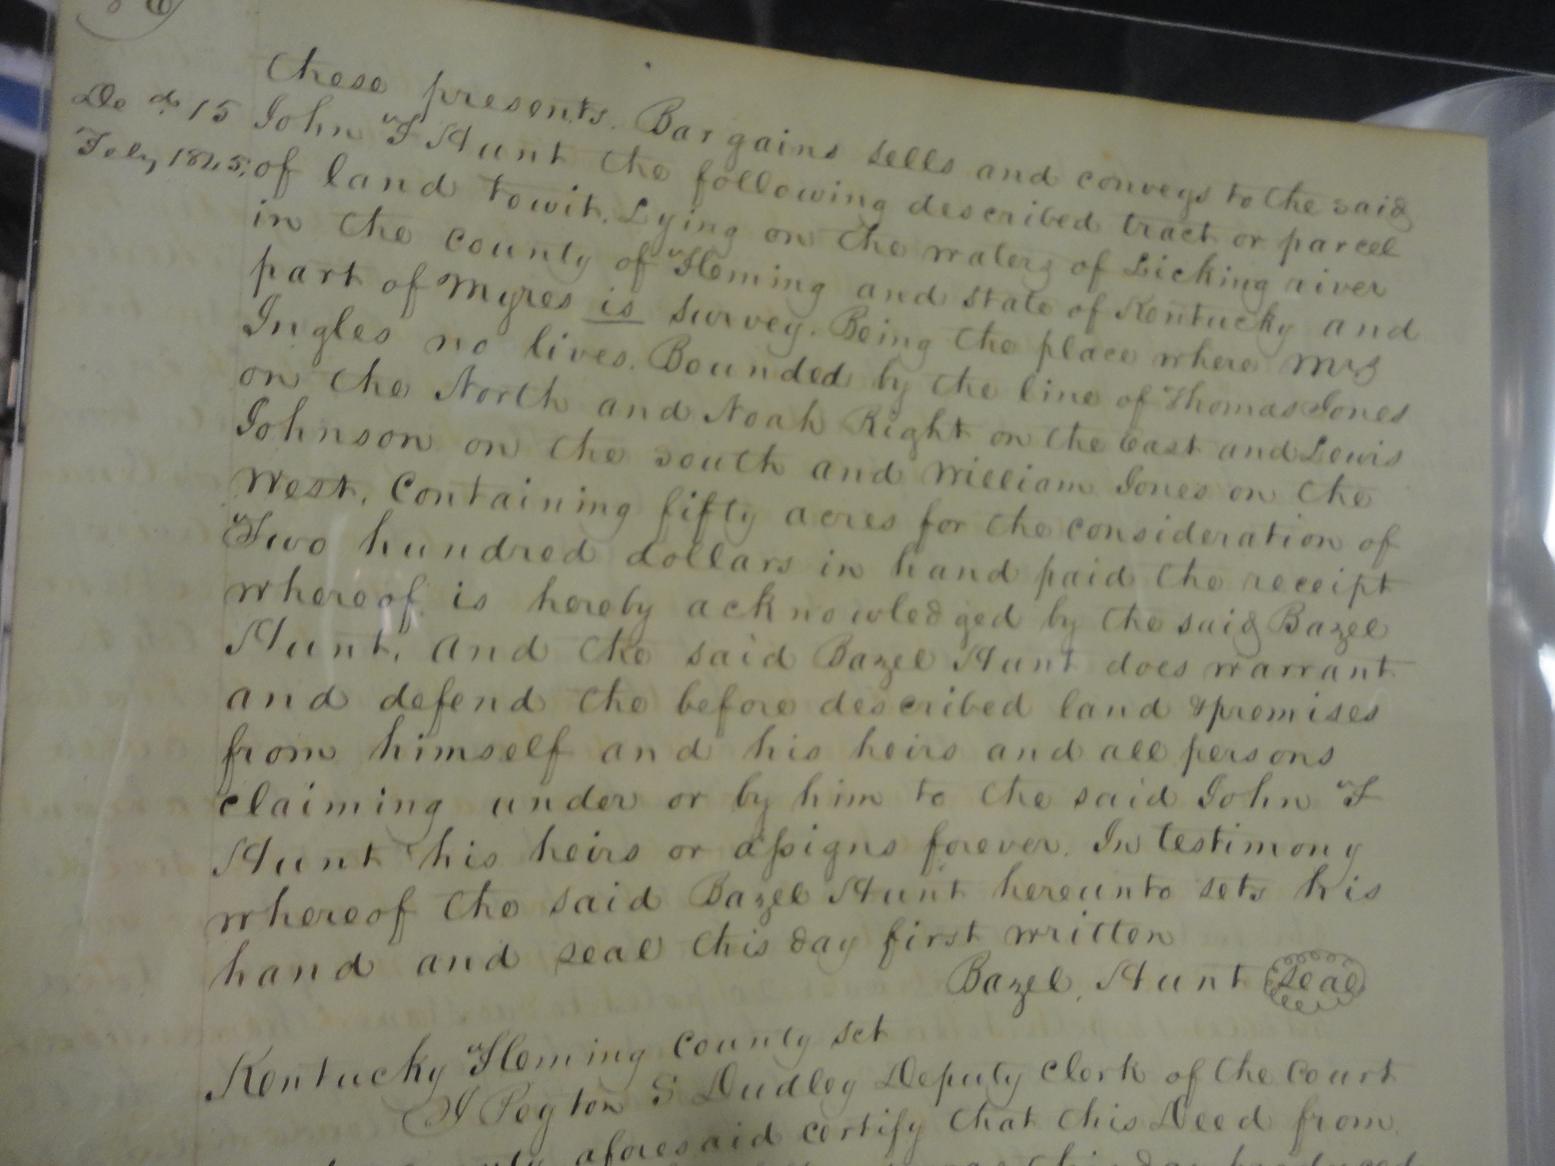 these presents. Bargains sells and conveys to the said
De d 15 John F Hunt the following described tract or parcel
Feby 1845. of land towit. Lying on the waters of Licking river
in the county of Fleming and state of Kentucky and
part of Myres is survey. Being the place where Mrs
Ingles no lives. Bounded by the line of Thomas Jones
on the North and Noah Right on the East and Lewis
Johnson on the south and William Jones on the
West. Containing fifty acres for the consideration of
Two hundred dollars in hand paid the receipt
whereof is hereby acknowledged by the said Bazel
Hunt. And the said Bazel Hunt does warrant
and defend the before described land & premises
from himself and his heirs and all persons
claiming under or by him to the said John F
Hunt his heirs or assigns forever. In testimony
whereof the said Bazel Hunt hereunto sets his
hand and seal this day first written
Bazel. Hunt Seal
Kentucky Fleming County set
I Peyton S Dudley Deputy Clerk of the Court
aforesaid certify that this Deed from